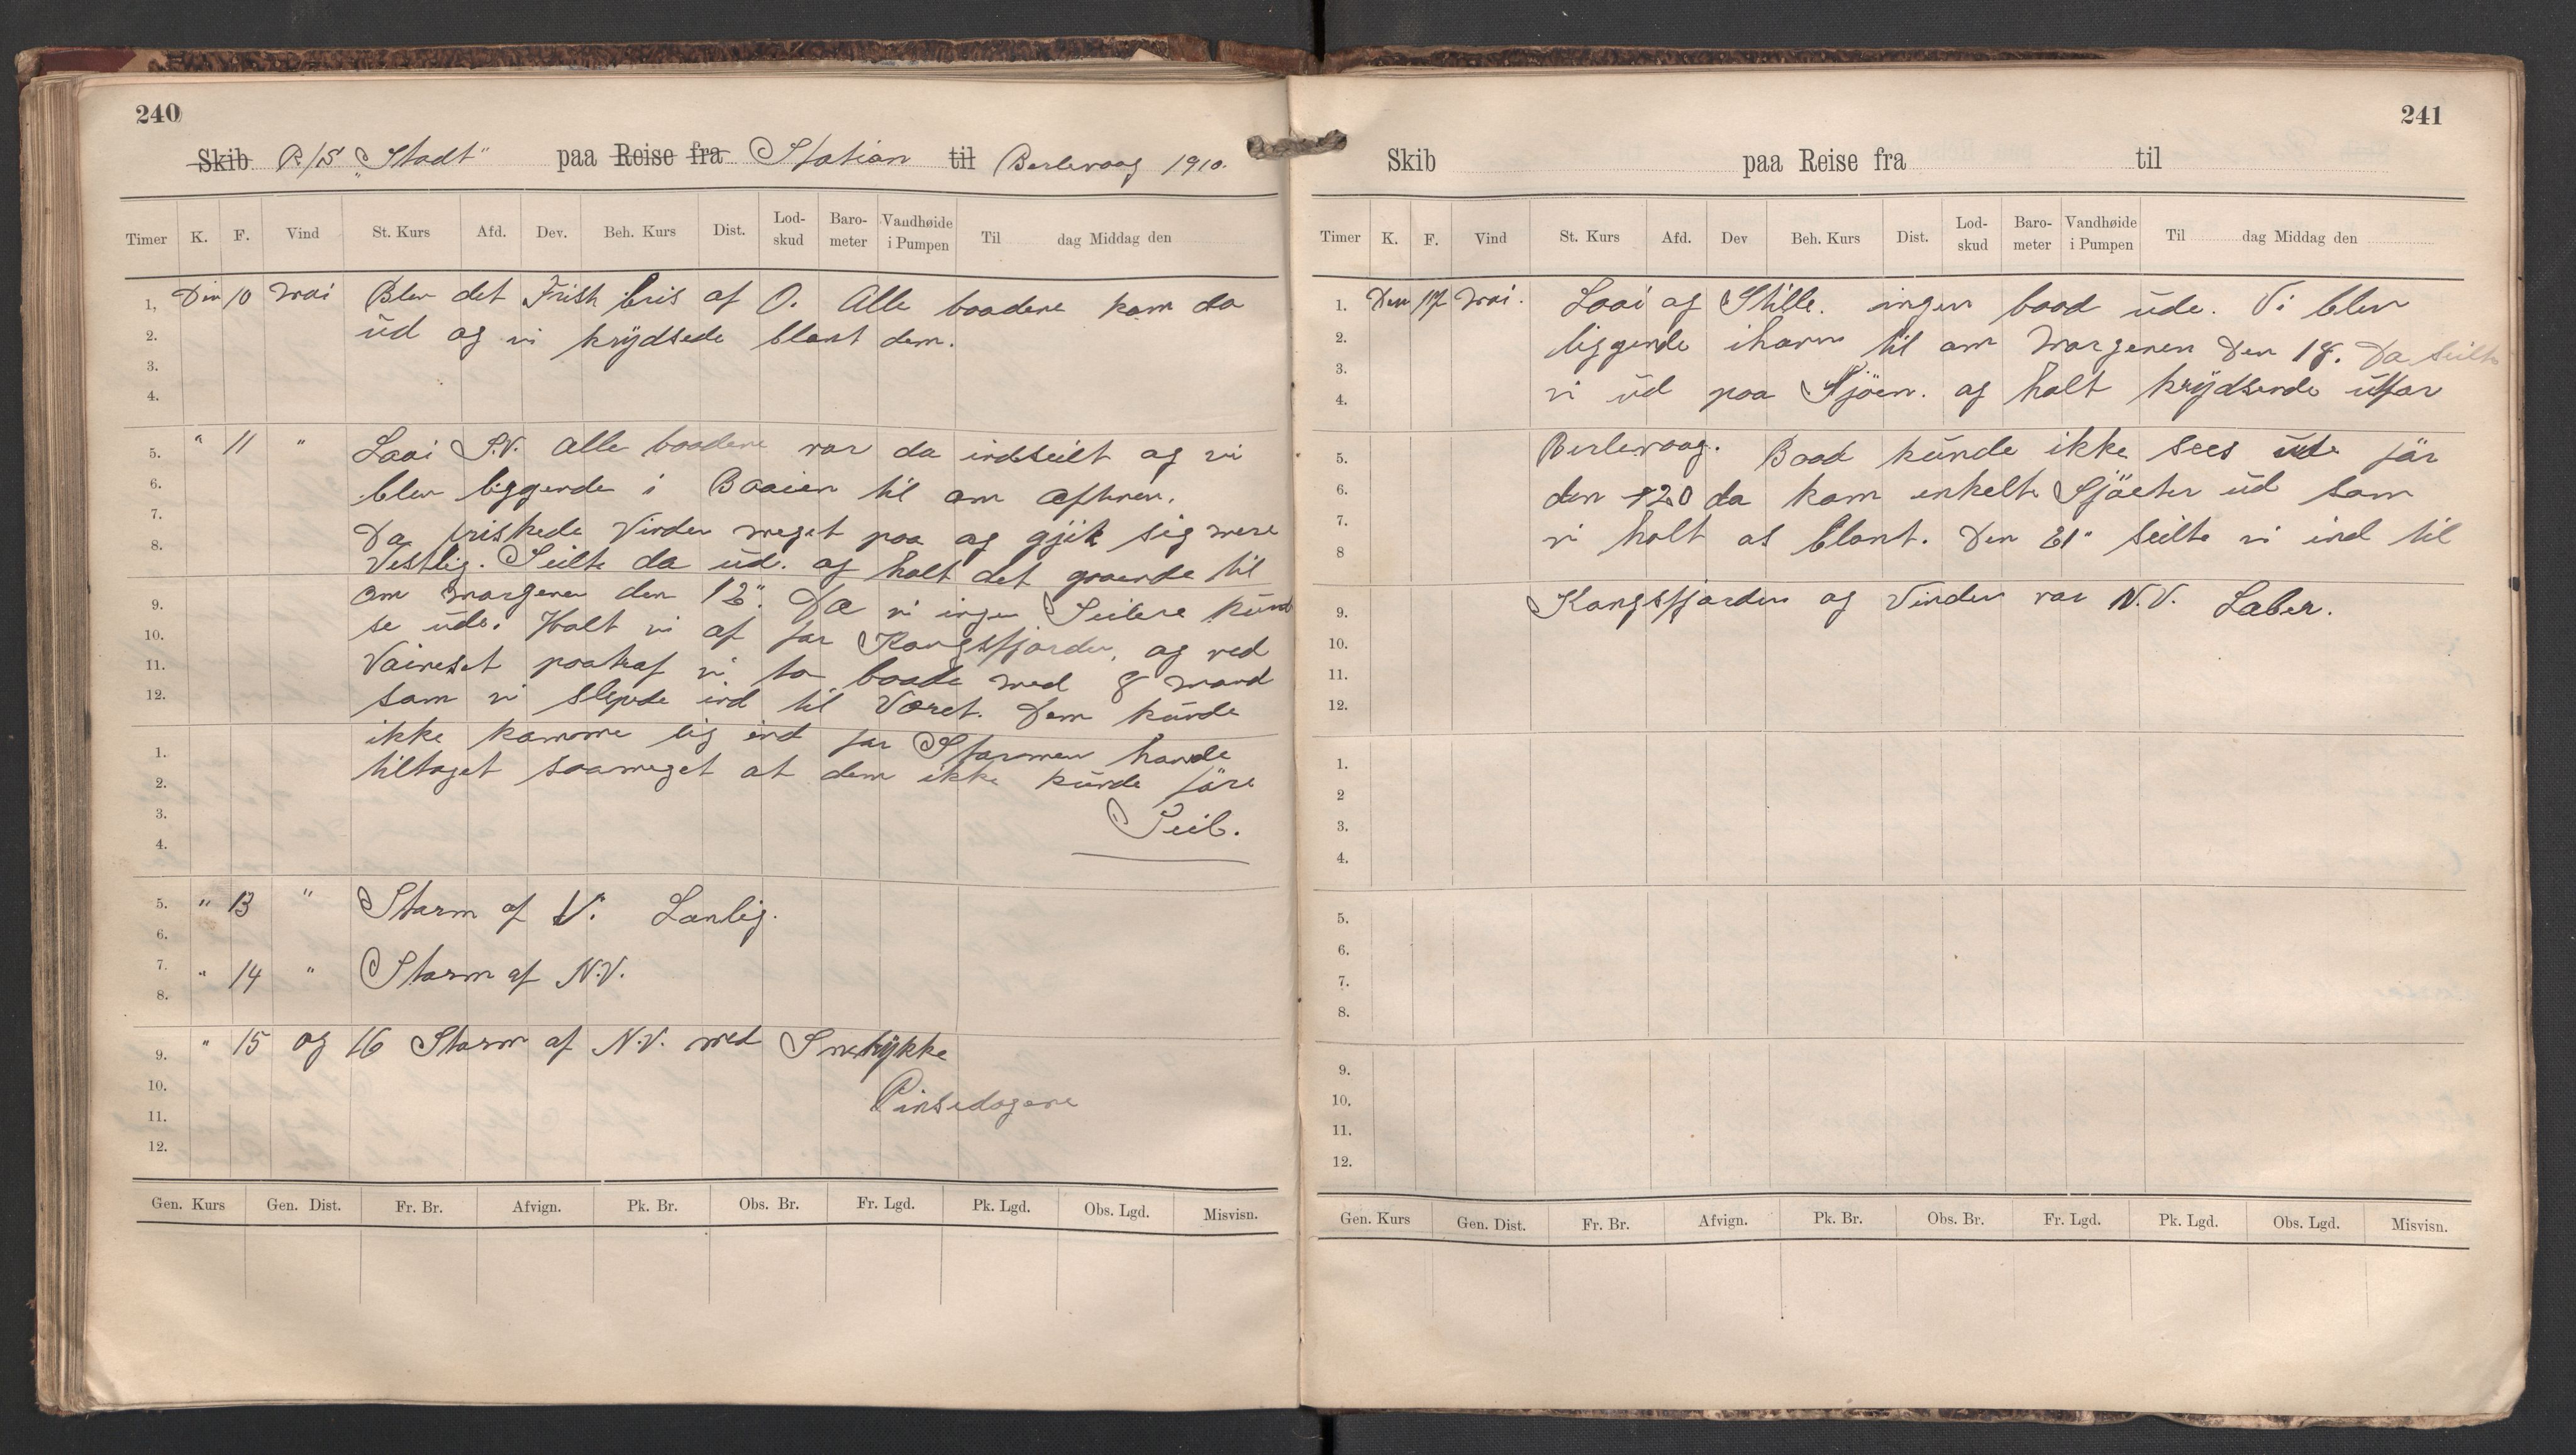 240
Skib R/S "Stadt" paa Reise fra Station til Berlevaag 1910.
Timer K. F. Vind St. Kurs Afd. Dev. Beh. Kurs Dist. Lod-skud Baro-meter Vandhøide i Pumpen Til dag Middag den
1, Den 10 Mai Blev det Frisk bris af O. Alle baadene kom da
2. ud og vi krydsede blant dem.
3.
4.
5. " 11 " Laai S.V. Alle baadene var da indseilt og vi
6. blev liggende i Baaien til om Aftenen.
7. Da friskede Vinden meget paa og gjik sig mere
8. Vestlig. Seilte da ud. og holt det gaaende til
9. om Morgenen den 12". Da vi ingen Seilere kund
10. se ude. Holt vi af for Kongsfjorden, og ved
11. Vaireset paatraf vi to baade med 8 Mand
12. som vi slepede ind til Været. Dem kunde
ikke komme sig ind for Stormen havde
1. tiltaget saameget at dem ikke kunde före
2. Seil.
3.
4.
5. " 13 " Storm af V. Lanlig.
6.
7. " 14 " Storm af N.V.
8.
9. " 15 og 16 Storm af N.V. med Snetykke
10. Pinsedagene
11.
12.
Gen. Kurs Gen. Dist. Fr. Br. Afvign. Pk. Br. Obs. Br. Fr. Lgd. Pk. Lgd. Obs. Lgd. Misvisn.
241
Skib paa Reise fra til
Timer K. F. Vind St. Kurs Afd. Dev Beh. Kurs Dist. Lod-skud Baro-meter Vandhøide i Pumpen Til dag Middag den
1. Den 17 Mai. Laai og Stille. ingen baad ude. Vi blev
2. liggende ihavn til om Morgenen Den 18. Da seilte
3. vi ud paa Sjöen. og holt krydsende utfor
4.
5. Berlevaag. Baad kunde ikke sees ude för
6. den 20 da kom enkelte Sjöeter ud som
7. vi holt os blant. Den 21" seilte vi ind til
8
9. Kongsfjorden og Vinden var N.V. Laber.
10.
11.
12.
1.
2
3.
4.
5.
6.
7.
8.
9.
10.
11.
12.
Gen. Kurs Gen. Dist. Fr. Br. Afvign. Pk. Br. Obs. Br. Fr. Lgd. Pk. Lgd. Obs. Lgd. Misvisn.